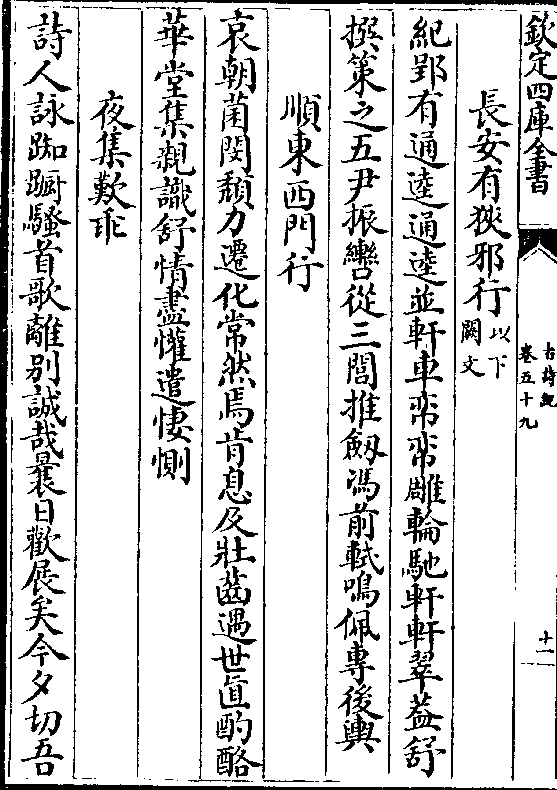 欽定四庫全書
古詩紀
卷五十九
十一
長安有狹邪行以下闕文
紀郢有通逵通逵並軒車帟帟雕輪馳軒軒翠葢舒
撰策之五尹振轡從三閭推劒馮前軾鳴佩專後輿
順東西門行
哀朝菌閔頽力遷化常然焉肯息及壯齒遇世直酌酪
華堂集親識舒情盡懽遣悽惻
夜集歎乖
詩人詠踟躕騷首歌離别誠哉曩日歡展矣今夕切吾